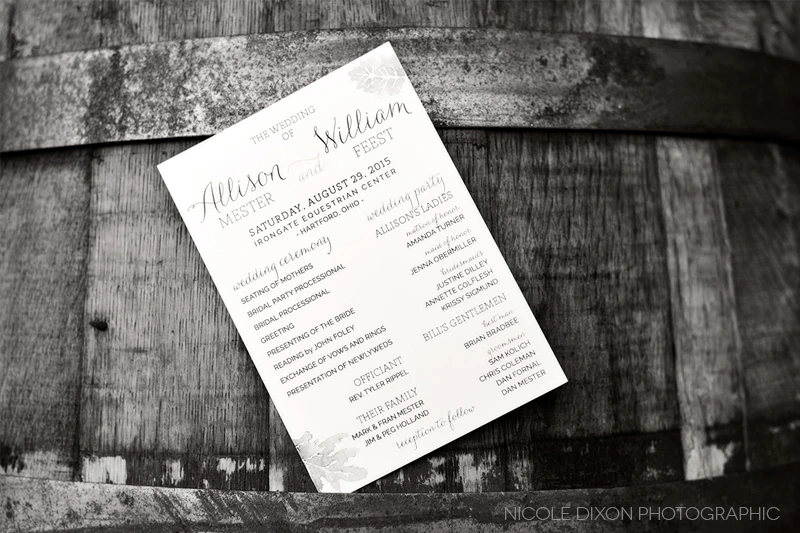 THE WEDDING
OF
Allison and William
MESTER FEEST
SATURDAY, AUGUST 29, 2015
IRONGATE EQUESTRIAN CENTER
- HARTFORD, OHIO -
wedding ceremony
SEATING OF MOTHERS
BRIDAL PARTY PROCESSIONAL
BRIDAL PROCESSIONAL
GREETING
PRESENTING OF THE BRIDE
READING by JOHN FOLEY
EXCHANGE OF VOWS AND RINGS
PRESENTATION OF NEWLYWEDS
OFFICIANT
REV. TYLER RIPPEL
THEIR FAMILY
MARK & FRAN MESTER
JIM & PEG HOLLAND
wedding party
ALLISON'S LADIES
matron of honor
AMANDA TURNER
maid of honor
JENNA OBERMILLER
bridesmaids
JUSTINE DILLEY
ANNETTE COLFLESH
KRISSY SIGMUND
BILL'S GENTLEMEN
best man
BRIAN BRADBEE
groomsmen
SAM KOLICH
CHRIS COLEMAN
DAN FORNAL
DAN MESTER
reception to follow
NICOLE DIXON PHOTOGRAPHIC